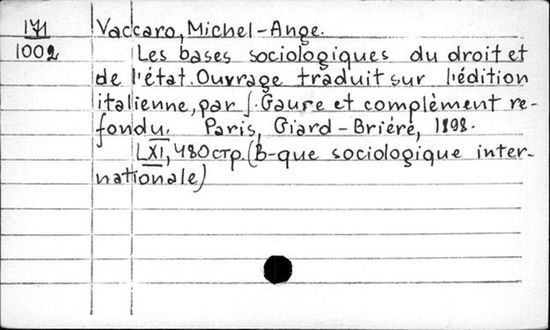 171 Vaccaro, Michel-Ange.
1002 Les bases sociologiques du droit et
de l'état. Ouvrage traduit sur l'édition
italienne, par J. Gaure et complèment re-
fondu. Paris, Giard-Briére, 1898.
LXI, 480 стр. (B-que sociologique inter-
nationale)